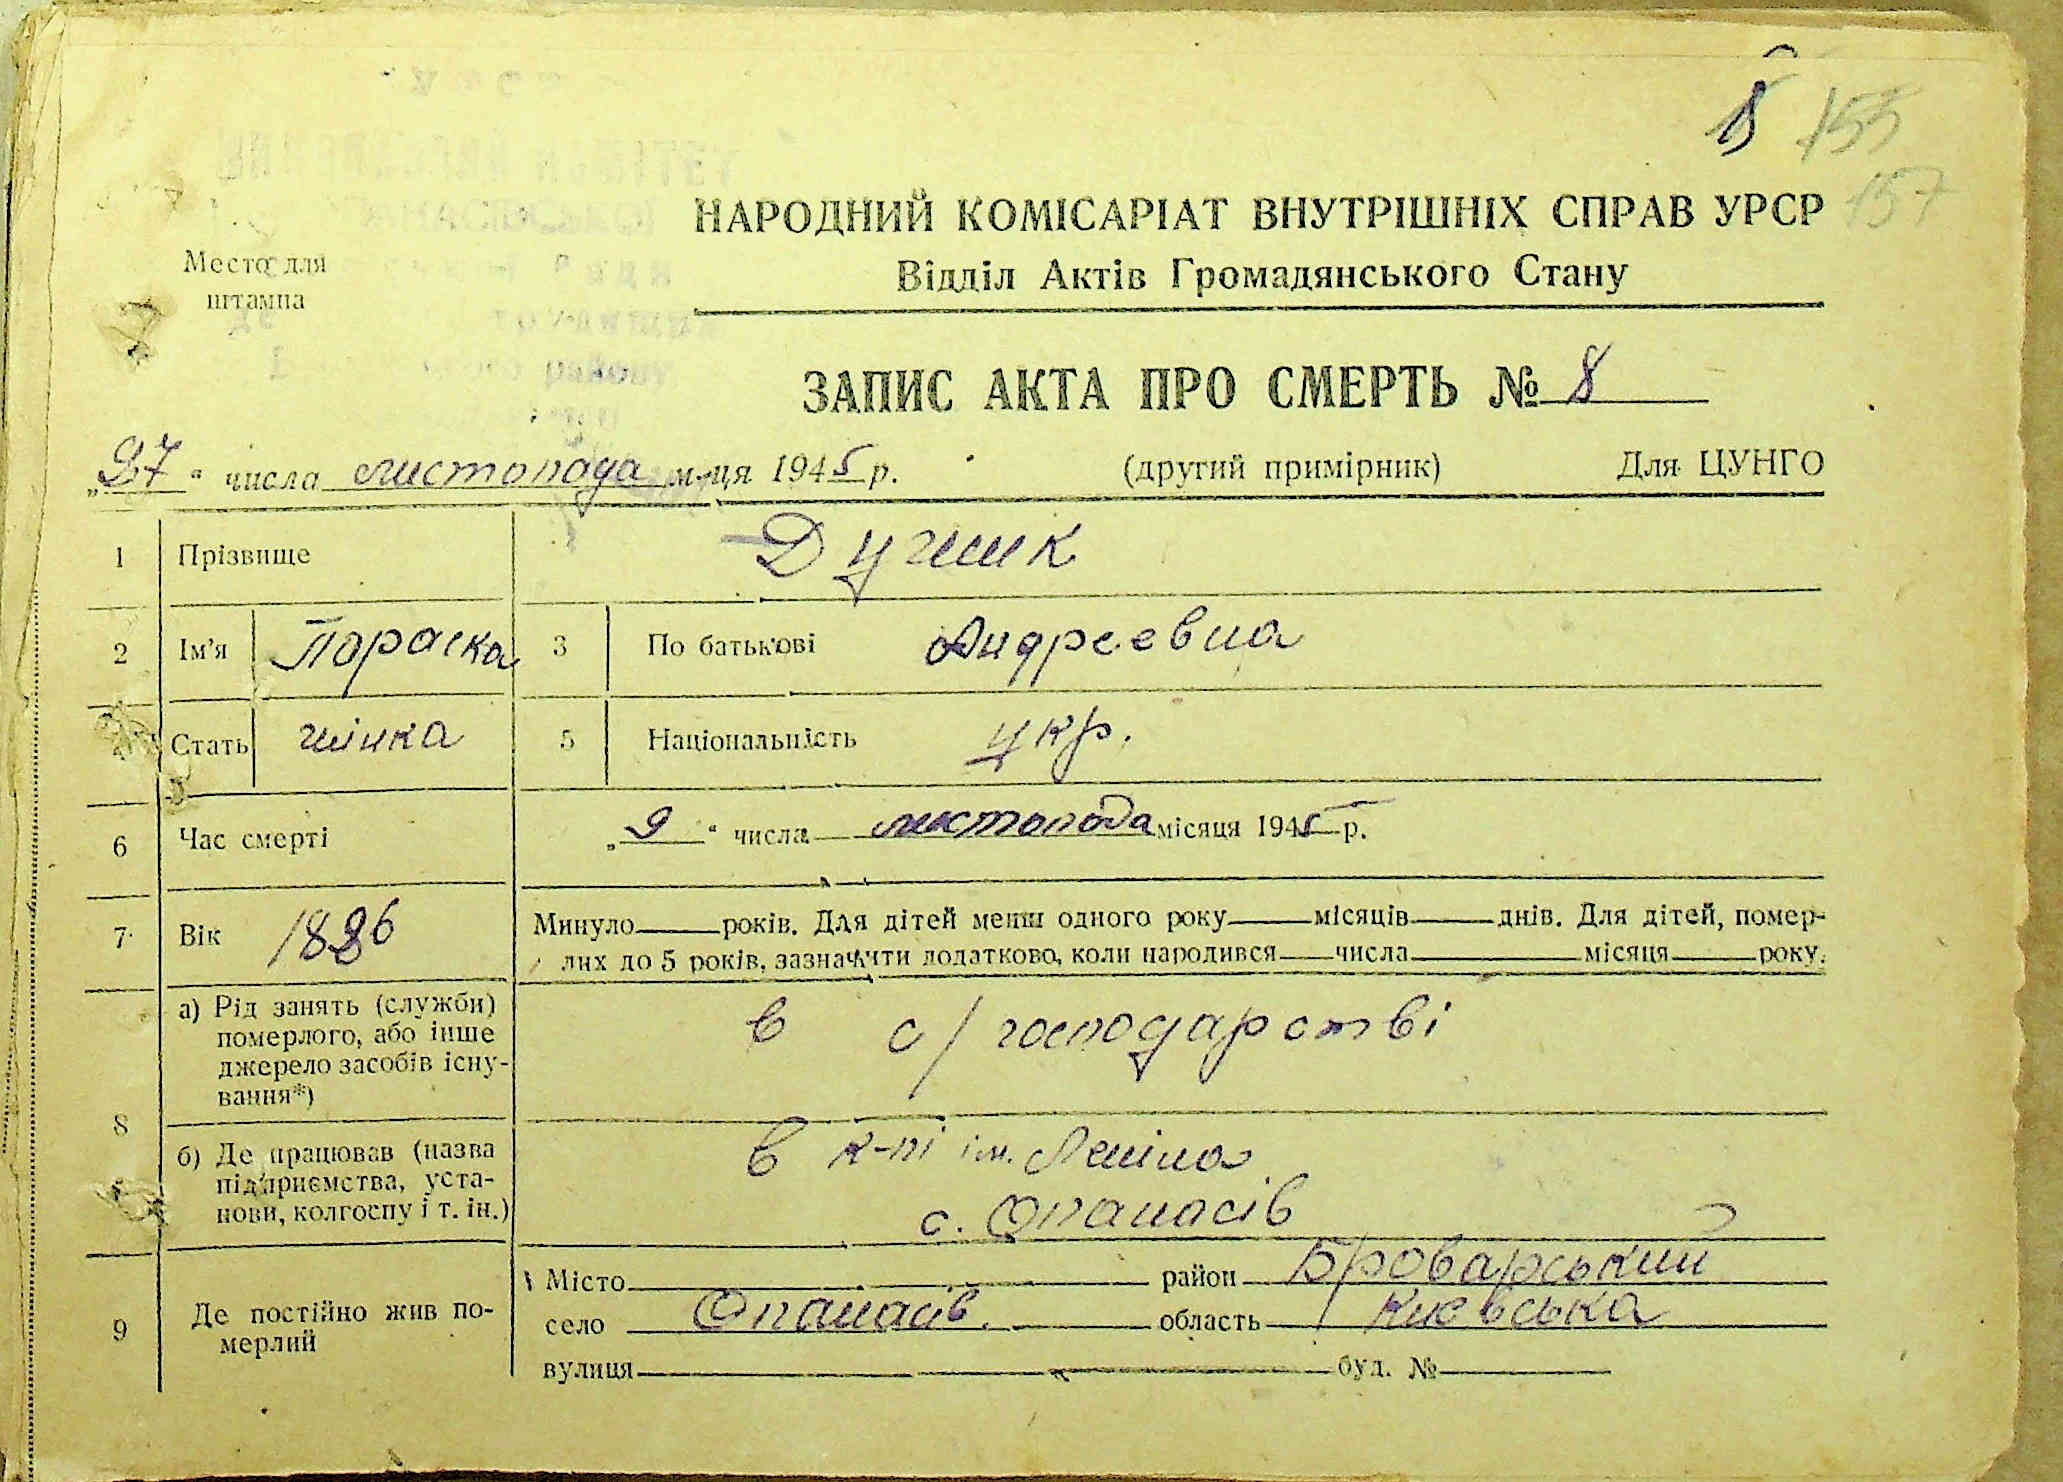 8 155
157
НАРОДНИЙ КОМІСАРІАТ ВНУТРІШНІХ СПРАВ УРСР
Відділ Актів Громадянського Стану
Место для
штампа
ЗАПИС АКТА ПРО СМЕРТЬ № 8
„27“ числа листопада м-ця 1945 р. (другий примірник) Для ЦУНГО
1 Прізвище Дужик
2 Ім'я Пораска 3 По батькові Андреевна
4 Стать жінка 5 Національність укр.
6 Час смерті „9“ числа листопада місяця 1945 р.
7 Вік 1886 Минуло року років. Для дітей менш одного року місяців днів. Для дітей, помер-
лих до 5 років, зазначити додатково, коли народився числа місяця року.
8 а) Рід занять (служби) померлого, або інше джерело засобів існу-вання*) в с/господарстві
б) Де працював (назва підприємства, уста-нови, колгоспу і т. ін.) в к-пі ім. Леніна
с. Опанасів
9 Де постійно жив по-мерлий Місто район Броварський
село Опанасів область Киевська
вулиця буд. №